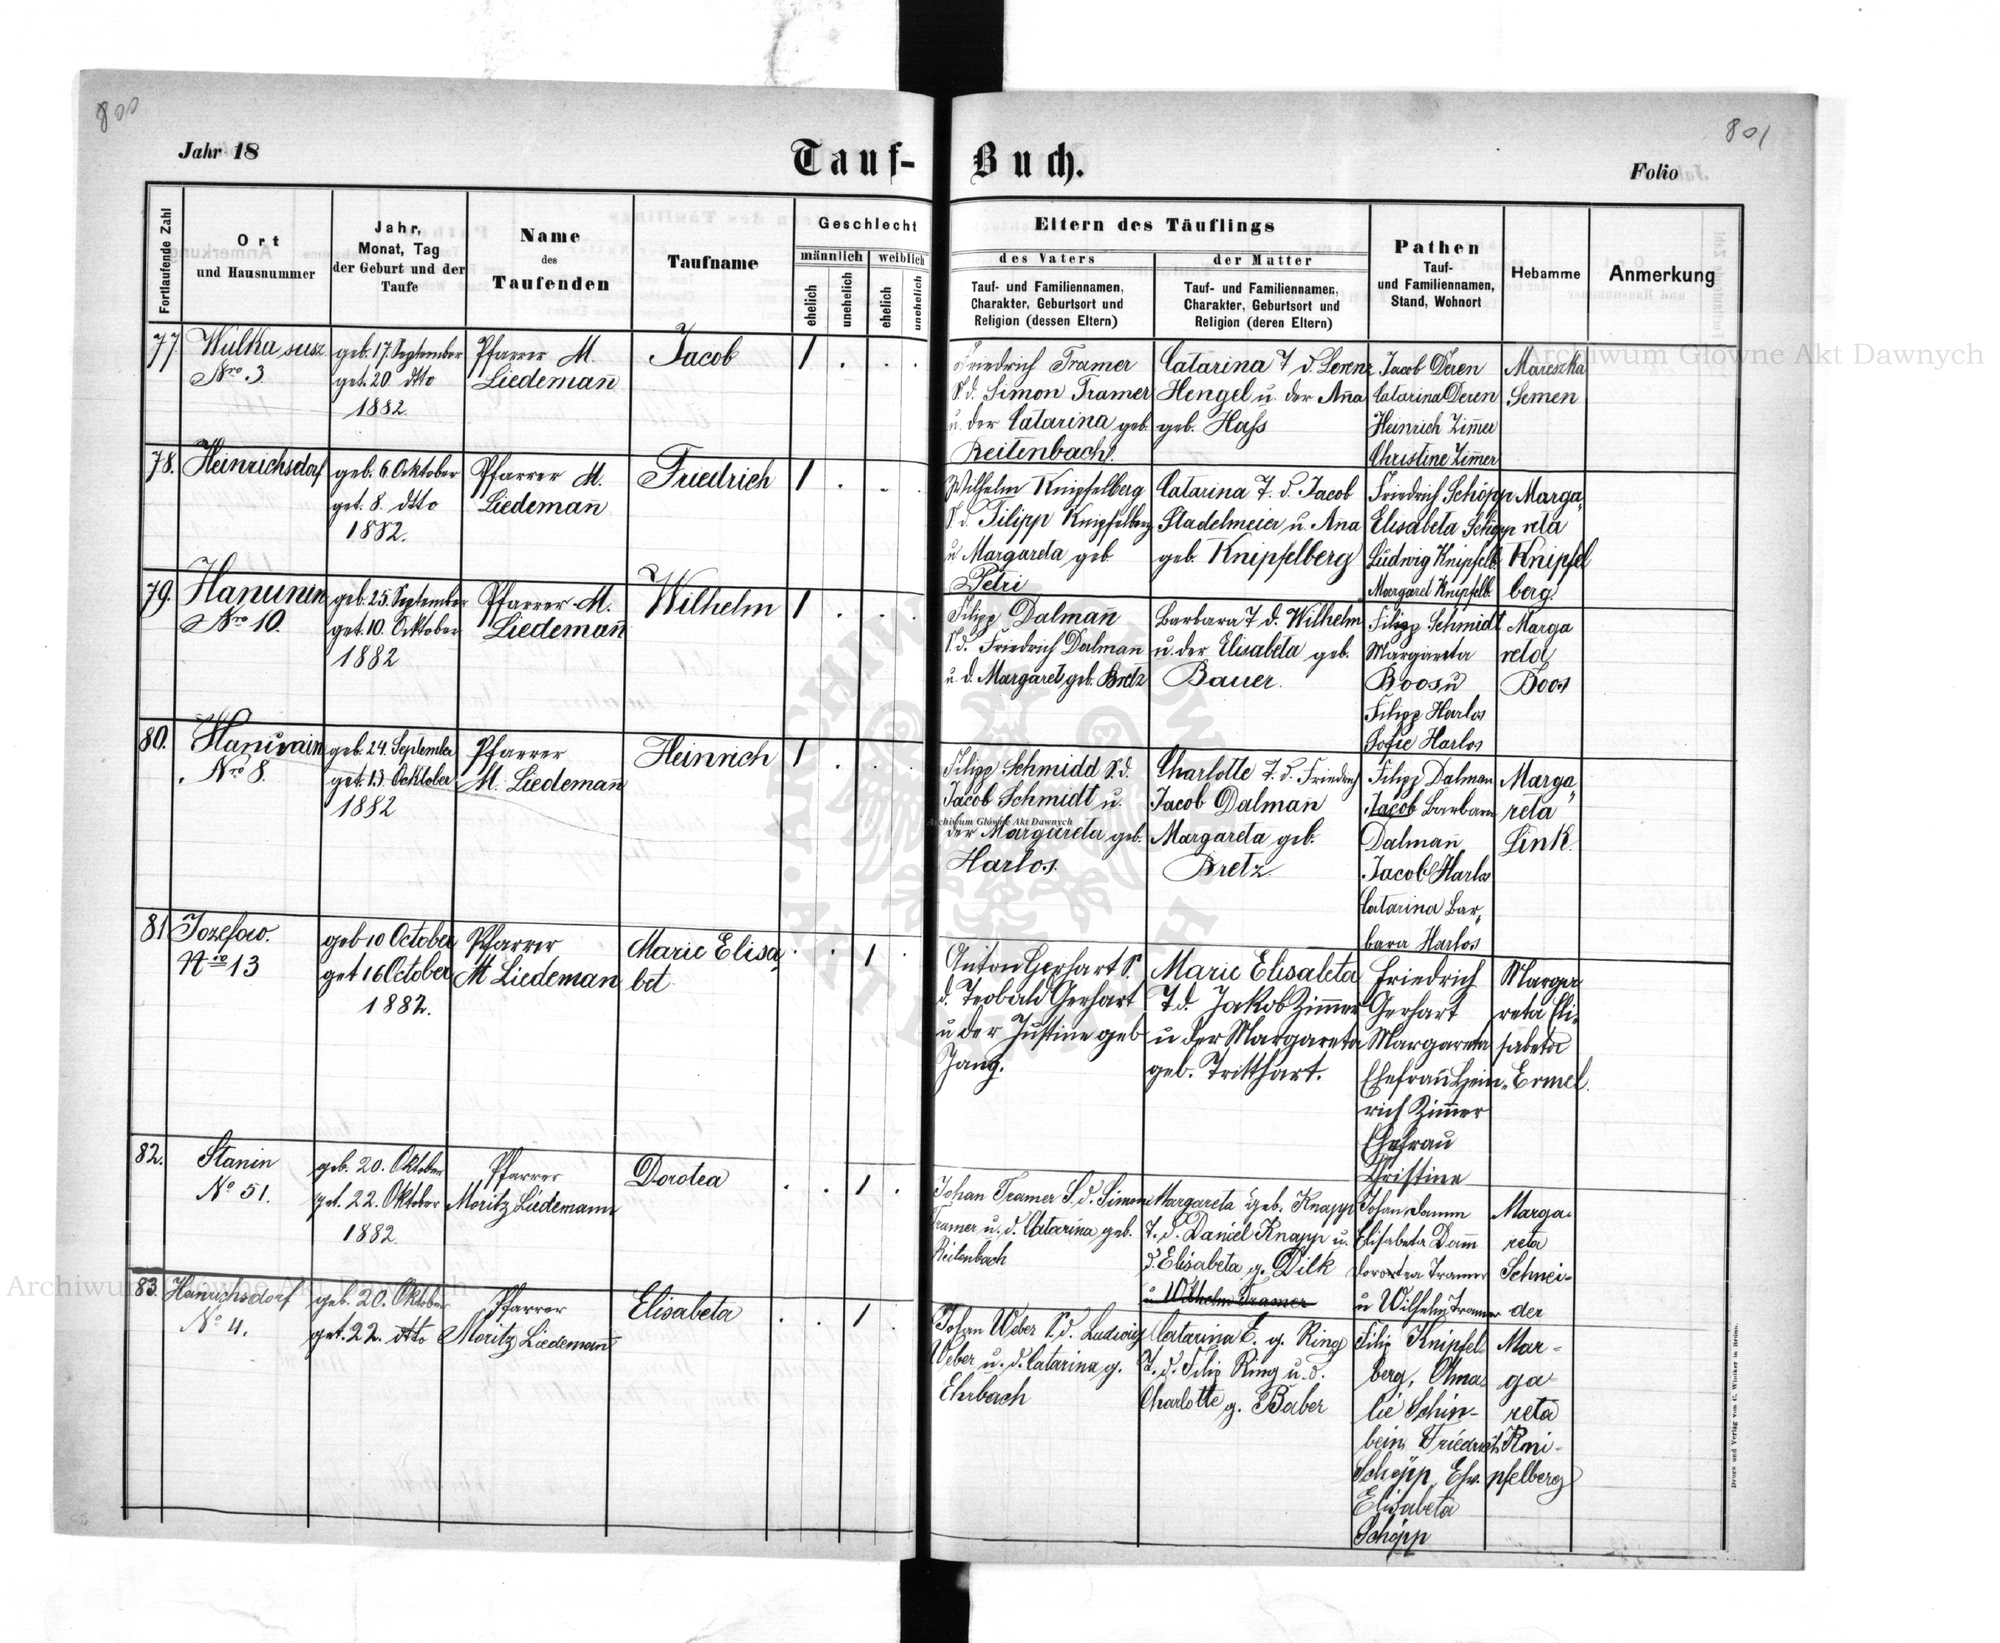 800
801
Jahr 18
Tauf-Buch.
Folio
Fortlaufende Zahl
Ort
und Hausnummer
Jahr,
Monat, Tag
der Geburt und der
Taufe
Name
des
Taufenden
Taufname
Geschlecht
männlich
weiblich
ehelich
unehelich
ehelich
unehelich
Eltern des Täuflings
des Vaters
Tauf- und Familiennamen,
Charakter, Geburtsort und
Religion (dessen Eltern)
der Mutter
Tauf- und Familiennamen,
Charakter, Geburtsort und
Religion (deren Eltern)
Pathen
Tauf-
und Familiennamen,
Stand, Wohnort
Hebamme
Anmerkung
77.
Wulka susz
Nro. 3
geb. 17. September
get. 20. dtto
1882.
Pfarrer M.
Liedemañ
Jacob
1
Friedrich Tramer
S. d. Simon Tramer
u. der Catarina geb.
Reitenbach.
Catarina T. d. Lorenz
Hengel u. der Aña
geb. Hass
Jacob Deren
Catarina Deren
Heinrich Zim̄er
Christine Zim̄er
Mareszka
Semen
78.
Heinrichsdorf
geb. 6. Oktober
get. 8. dtto
1882.
Pfarrer M.
Liedemañ
Friedrich
1
Wilhelm Knipfelberg
S. d. Filipp Knipfelberg
u. Margareta geb
Petri
Catarina T. d. Jacob
Stadelmeier u. Ana
geb. Knipfelberg
Friedrich Schöpp
Elisabeta Schöpp
Ludwig Knipfelb.
Margaret Knipfelb.
Marga,,
reta
Knipfel
berg
79.
Hanunin
Nro 10.
geb. 25. September
get. 10. Oktober
1882
Pfarrer M.
Liedemañ
Wilhelm
1
Filipp Dalmañ
S. d. Friedrich Dalmañ
u. d. Margaret geb. Bretz
Barbara T. d. Wilhelm
u. der Elisabeta geb.
Bauer.
Filipp Schmidt
Margareta
Boos u
Filipp Harlos
Sofie Harlos
Marga
reta
Boos
80.
Hanunin
Nro 8.
geb. 24. September
get. 13. Ocktober
1882
Pfarrer
M. Liedemañ
Heinrich
1
Filipp Schmidd S. d.
Jacob Schmidt u.
der Margareta geb.
Harlos.
Charlotte T. d. Friedrich
Jacob Dalman
Margareta geb.
Bretz
Filipp Dalman
Jacob Barbara
Dalmañ
Jacob Harlos
Catarina Bar,,
bara Harlos
Marga,,
reta
Link.
81
Jozefow.
Nro 13
geb 10 October
get 16 October
1882.
Pfarrer
M Liedeman
Marie Elisa,,
bet
1
Anton Gerhart S.
d. Teobald Gerhart
u der Justine geb
Jang.
Marie Elisabeta
T d. Jakob Zimmer
u der Margareta
geb. Tritthart.
Friedrich
Gerhart
Margareta
Ehefrau Hein,,
rich Zim̄er
Ehefrau
Christine
Marga
reta Eli,,
sabeta
Ermel.
82.
Stanin
No 51.
geb. 20. Oktober
get. 22. Oktober
1882.
Pfarrer
Moritz Liedemann
Dorotea
1
Johan Tramer S. d. Simon
Tramer u. d. Catarina geb.
Reitenbach
Margareta geb. Knapp
T. d. Daniel Knapp u.
d. Elisabeta g. Dilk
u Wilhelm Tramer
Johan Damm
Elisabeta Dam̄
Dorotea Tramer
u Wilhelm Tramer
Marga-
reta
Schnei-
der
83.
Heinrichsdorf
No 4.
geb. 20. Oktober
get. 22. dtto
Pfarrer
Moritz Liedemañ
Elisabeta
1
Johan Weber S. d. Ludwig
Weber u. d. Catarina g.
Ehrbach
Catarina E. g. Ring
T. d. Filip Ring u. d.
Charlotte g. Baber
Filip Knipfel
berg, Ama-
lie Schin-
bein Friedrich
Schöpp, Ehr.
Elisabeta
Schöpp
Mar-
ga-
reta
Kni-
pfelberg
Druck und Verlag von C. Winiker in Brünn.
Archiwum Główne Akt Dawnych
Archiwum Główne Akt Dawnych
Archiwum Główne Akt Dawnych